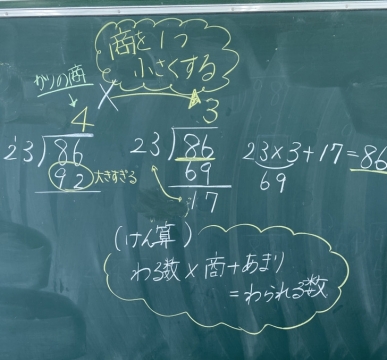 商を1つ
小さくする
かりの商
4
23)86
92 大きすぎる
3
23)86
69
17
23×3+17=86
69
(けん算)
わる数×商+あまり
=わられる数